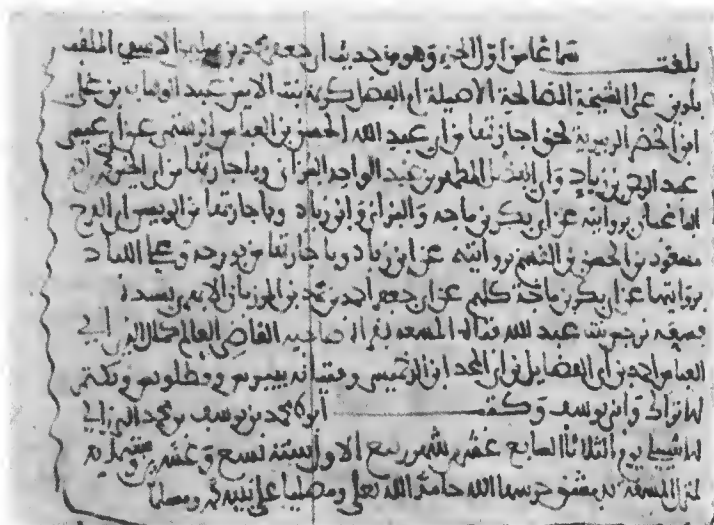 بلغت سماعا من اول الجزء وهو من حديث ابي جعفر محمد بن سليمن الاسدي الملقب
بلوين على الشيخة الصالحة الاصيلة ام الفضل كريمة بنت الامين عبد الوهاب بن علي
ابن الخضر الزبيرية بحق اجازتها من ابي عبد الله الحسن بن العباس الرستمي عن ابي عيسى
عبد الرحمن بن زياد وابي الفضل المطهر بن عبد الواحد البزاني وباجازتها من ابي الخير محمد بن
بروايته عن ابي بكر بن ماجه والبزاني وابن زياد وباجازتها من الرييس ابي الفرج
مسعود بن الحسن بن القسم بروايته عن ابن زياد وباجازتها من
بروايتهما عن ابي بكر بن ماجة كلهم عن ابي جعفر احمد بن محمد بن المرزبان الابهري بسنده
بنت عبد الله المسمعة بقراة صاحبه القاضي العالم كمال الدين ابي
العباس احمد بن ابي الفضايل بن ابي المجد ابن الدخميسي
وابن يوسف وكتب محمد بن يوسف بن محمد البرزالي
الاشبيلي يوم الثلاثا السابع عشر من شهر ربيع الاول سنة تسع وعشرين وستماية
بمنزل المسمعة بدمشق حرسها الله حامدا لله تعالى ومصليا على نبيه محمد ومسلما